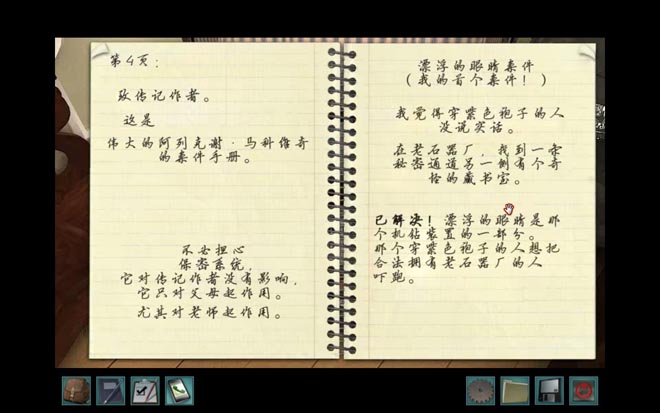 第4页：
致传记作者。
这是
伟大的阿列克谢·马科维奇
的案件手册。
不必担心
保密系统，
它对传记作者没有影响，
它只对父母起作用。
尤其对老师起作用。
漂浮的眼睛案件
（我的首个案件！）
我觉得穿紫色袍子的人
没说实话。
在老石器厂，我找到一条
秘密通道另一侧有个奇
怪的藏书室。
已解决！漂浮的眼睛是那
个机钻装置的一部分。
那个穿紫色袍子的人想把
合法拥有老石器厂的人
吓跑。